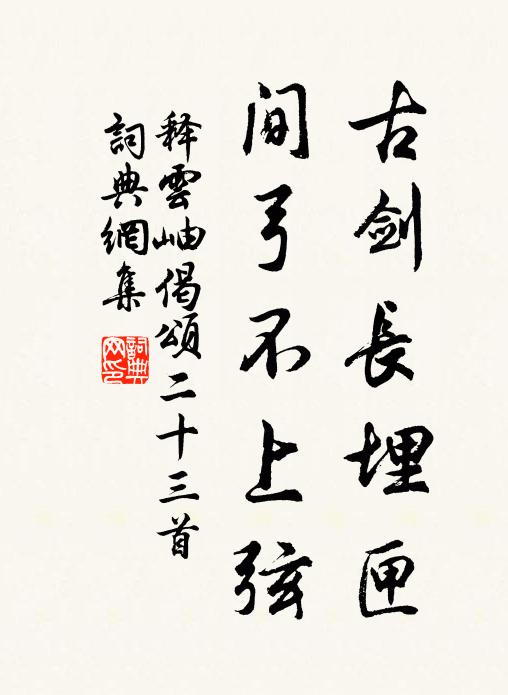 古剑長埋匣
间弓不上弦
释雲岫偈頌二十三首
詞典網集
詞典网印